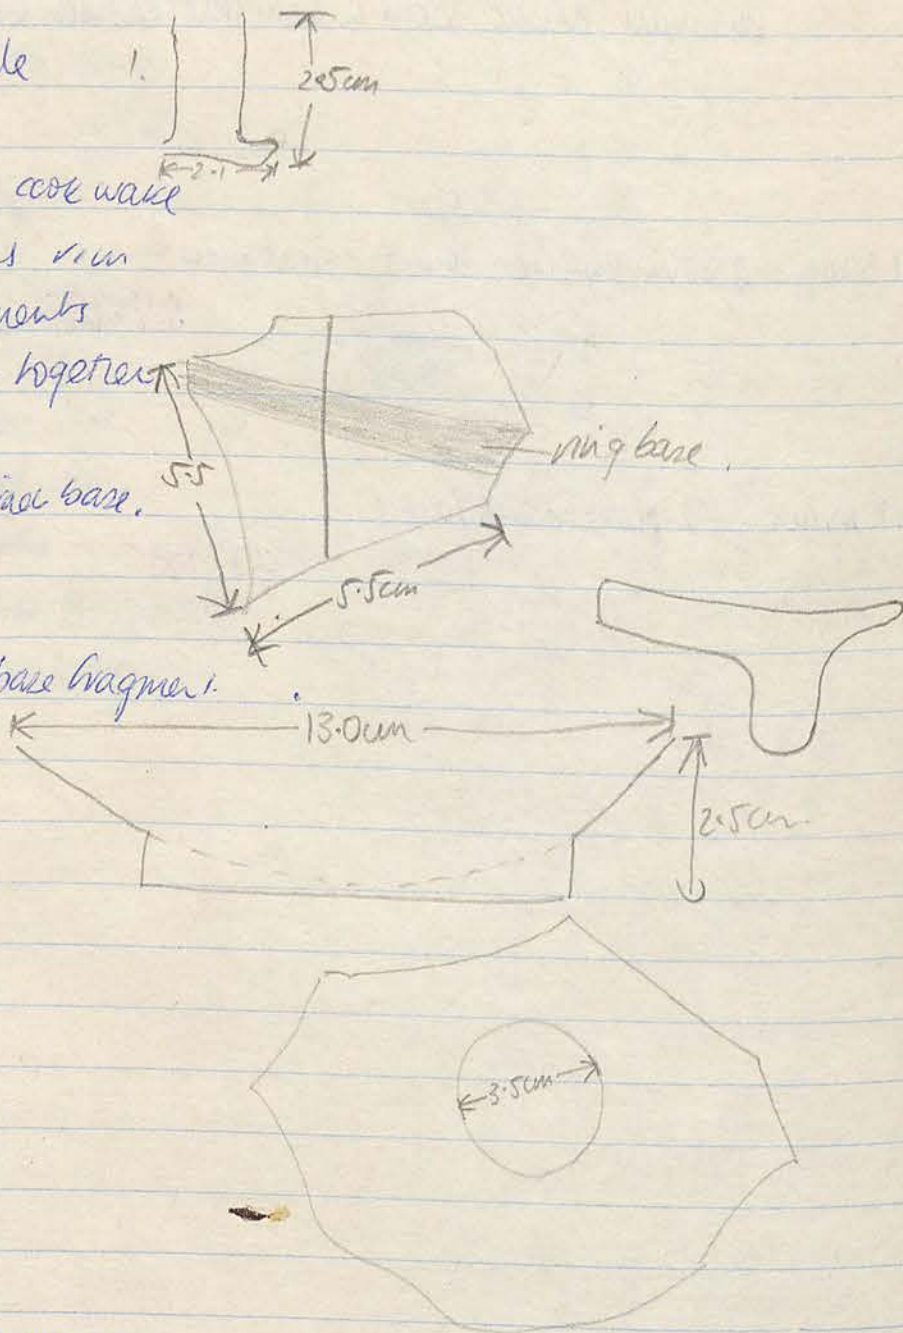 1.
2.5cm
2.1
cook wake
rim
together
ring base.
5.5
base.
5.5cm
base fragment.
13.0cm
2.5cm
3.5cm